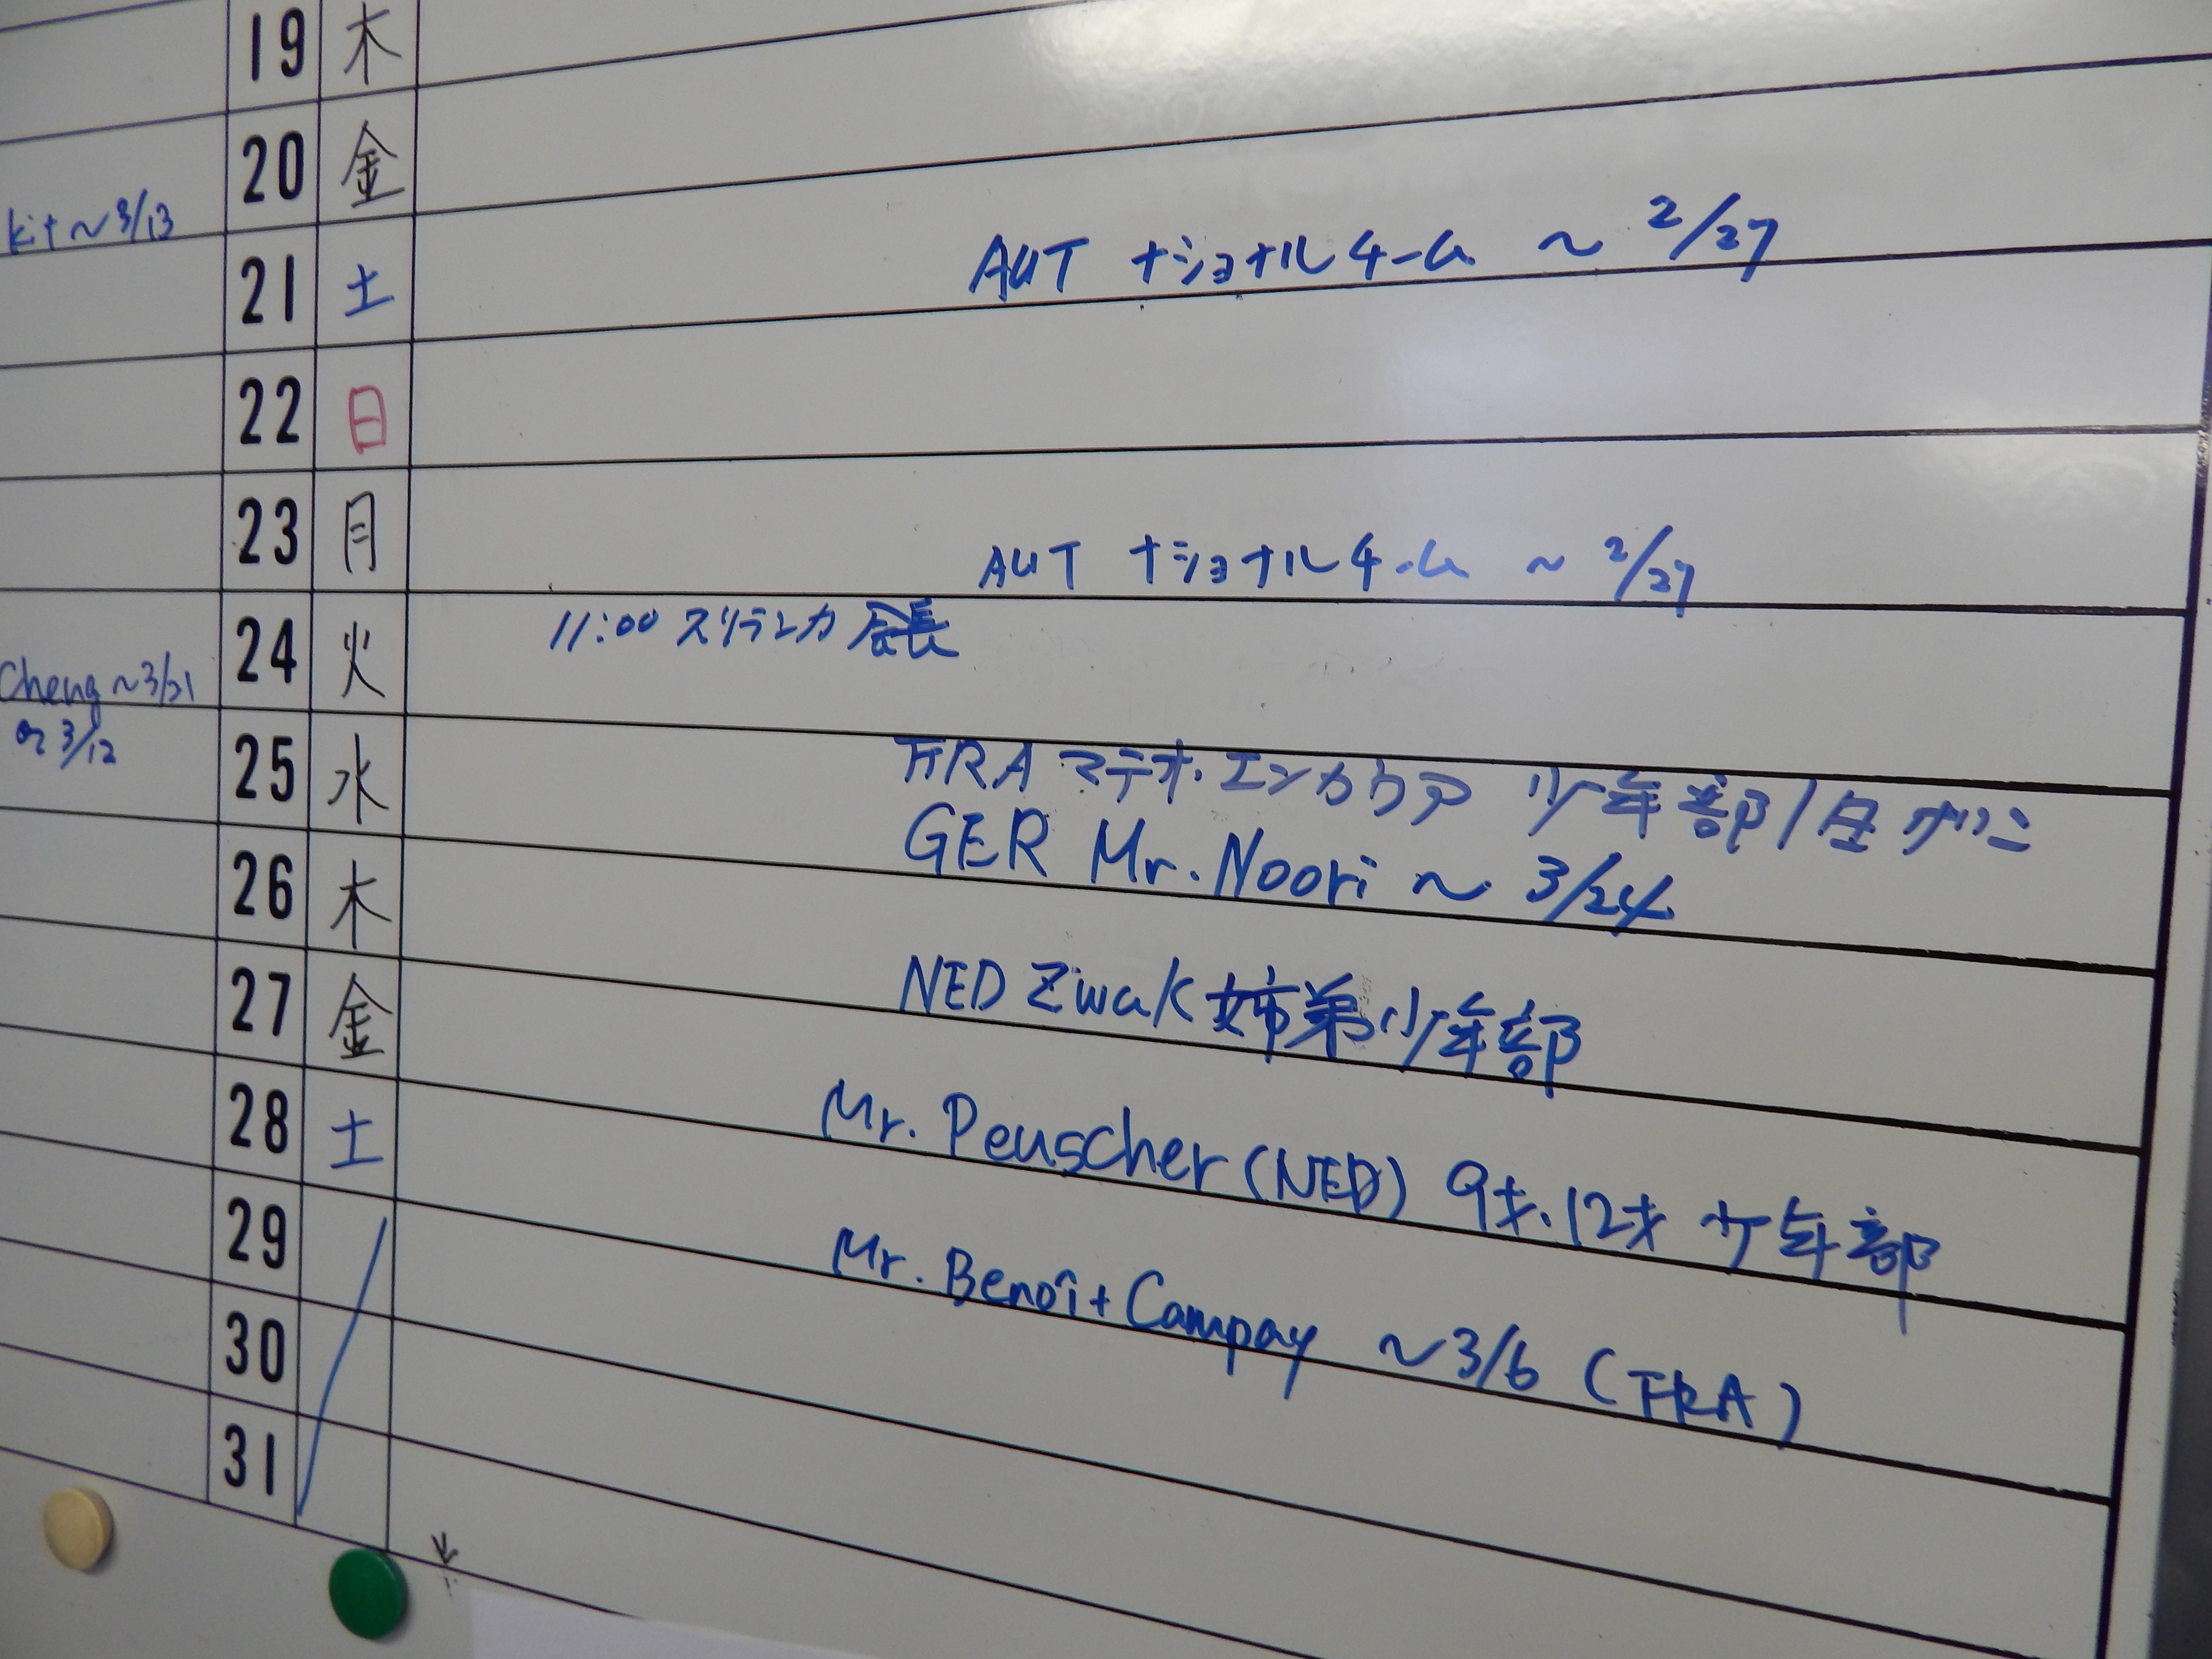 19 木
20 金
kit ~ 3/13
21 土 AUT ナショナルチーム ~ 2/27
22 日
23 月 AUT ナショナルチーム ~ 2/27
24 火 11:00 スリランカ 会長
Cheng ~3/21
or 3/12
25 水 FRA マテオ・エンカウア 少年部/
26 木 GER Mr. Noori ~ 3/24
27 金 NED Zwak 姉弟 少年部
28 土 Mr. Peuscher (NED) 9才、12才 少年部
29 Mr. Benoît Campay ~3/6 (FRA)
30
31